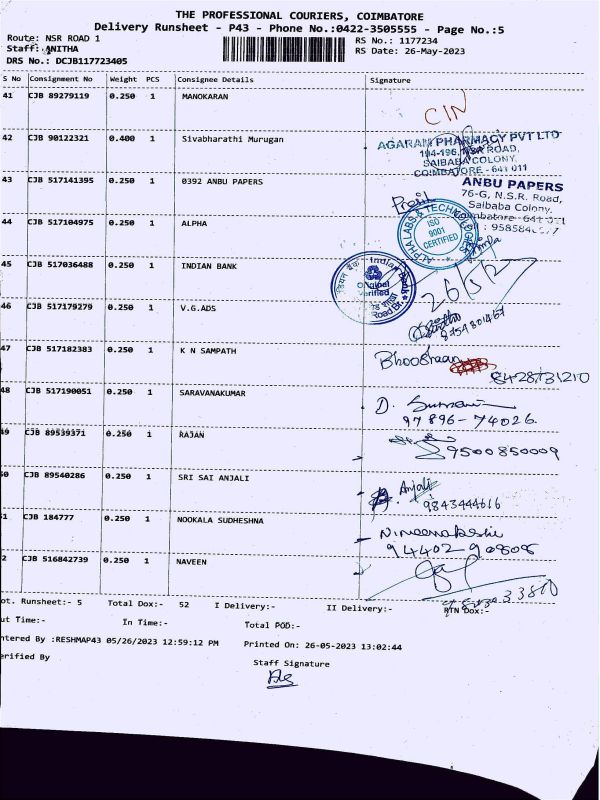 THE PROFESSIONAL COURIERS, COIMBATORE
Delivery Runsheet - P43 - Phone No.:0422-3505555 - Page No.:5
Route: NSR ROAD 1
RS No.: 1177234
Staff: ANITHA
RS Date: 26-May-2023
DRS No.: DCJB117723405
S No Consignment No Weight PCS Consignee Details Signature
41 CJB 89279119 0.250 1 MANOKARAN
CIN
42 CJB 90122321 0.400 1 Sivabharathi Murugan
AGARAM PHARMACY PVT LTD
194-196, NSR ROAD,
SAIBABA COLONY,
COIMBATORE - 641 011
43 CJB 517141395 0.250 1 0392 ANBU PAPERS
ANBU PAPERS
76-G, N.S.R. Road,
Saibaba Colony,
Coimbatore- 641 011
44 CJB 517104975 0.250 1 ALPHA
ALPHA LABS & TECHNOLOGIES
ISO
9001
CERTIFIED
45 CJB 517036488 0.250 1 INDIAN BANK
Indian Bank
Original
Verified
26/5/2
46 CJB 517179279 0.250 1 V.G.ADS
8754801467
47 CJB 517182383 0.250 1 K N SAMPATH
Bhooshaan
8428731210
48 CJB 517190051 0.250 1 SARAVANAKUMAR
D.
97896-74026
49 CJB 89539371 0.250 1 RAJAN
9500850009
50 CJB 89540286 0.250 1 SRI SAI ANJALI
Anjali
9843444616
51 CJB 184777 0.250 1 NOOKALA SUDHESHNA
94402-90808
2 CJB 516842739 0.250 1 NAVEEN
ot. Runsheet:- 5 Total Dox:- 52 I Delivery:- II Delivery:- RTN Dox:-
ut Time:- In Time:- Total POD:-
ntered By :RESHMAP43 05/26/2023 12:59:12 PM Printed On: 26-05-2023 13:02:44
erified By
Staff Signature